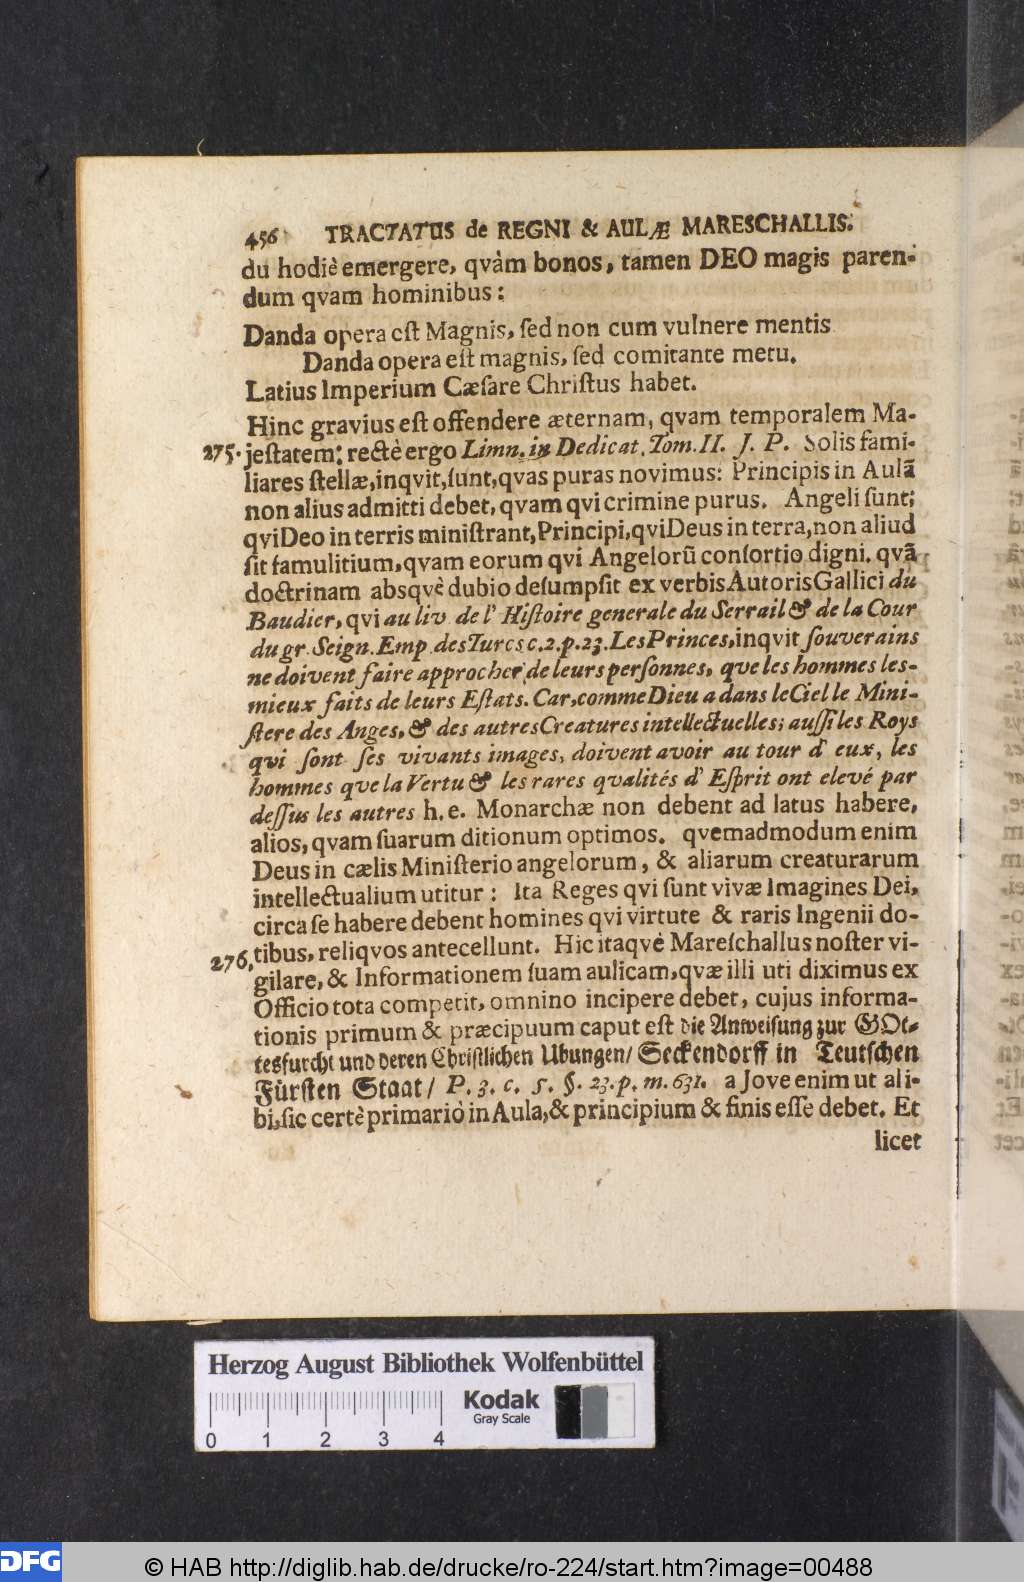 456 TRACTATUS de REGNI & AULÆ MARESCHALLIS.
du hodiè emergere, qvàm bonos, tamen DEO magis paren-
dum qvam hominibus:
Danda opera eſt Magnis, ſed non cum vulnere mentis
Danda opera eſt magnis, ſed comitante metu.
Latius Imperium Cæſare Chriſtus habet.
Hinc gravius eſt offendere æternam, qvam temporalem Ma-
275. jeſtatem: rectè ergo Limn. in Dedicat. Tom. II. J. P. Solis fami-
liares ſtellæ, inqvit, ſunt, qvas puras novimus: Principis in Aulã
non alius admitti debet, qvam qvi crimine purus. Angeli ſunt;
qvi Deo in terris miniſtrant, Principi, qvi Deus in terra, non aliud
ſit famulitium, qvam eorum qvi Angelorũ conſortio digni. qvã
doctrinam absqvè dubio deſumpſit ex verbis Autoris Gallici du
Baudier, qvi au liv. de l' Hiſtoire generale du Serrail & de la Cour
du gr. Seign. Emp. des Turcs c. 2. p. 23. Les Princes, inqvit ſouverains
ne doivent faire approcher de leurs perſonnes, que les hommes les-
mieux faits de leurs Eſtats. Car, comme Dieu a dans le Ciel le Mini-
ſtere des Anges, & des autres Creatures intellectuelles; auſſi les Roys
qvi ſont ſes vivants images, doivent avoir au tour d' eux, les
hommes qve la Vertu & les rares qvalités d' Eſprit ont elevé par
deſſus les autres h. e. Monarchæ non debent ad latus habere,
alios, qvam ſuarum ditionum optimos. qvemadmodum enim
Deus in cælis Miniſterio angelorum, & aliarum creaturarum
intellectualium utitur: Ita Reges qvi ſunt vivæ Imagines Dei,
circa ſe habere debent homines qvi virtute & raris Ingenii do-
tibus, reliqvos antecellunt. Hic itaqvè Mareſchallus noſter vi-
276. gilare, & Informationem ſuam aulicam, qvæ illi uti diximus ex
Officio tota competit, omnino incipere debet, cujus informa-
tionis primum & præcipuum caput eſt die Anweiſung zur GOt-
tesfurcht und deren Chriſtlichen Ubungen/ Seckendorff in Teutſchen
Fürſten Staat/ P. 3. c. 5. §. 23. p. m. 631. a Jove enim ut ali-
bi, ſic certè primariò in Aula, & principium & finis eſſe debet. Et
licet
Herzog August Bibliothek Wolfenbüttel
Kodak
Gray Scale
0 1 2 3 4
DFG © HAB http://diglib.hab.de/drucke/ro-224/start.htm?image=00488